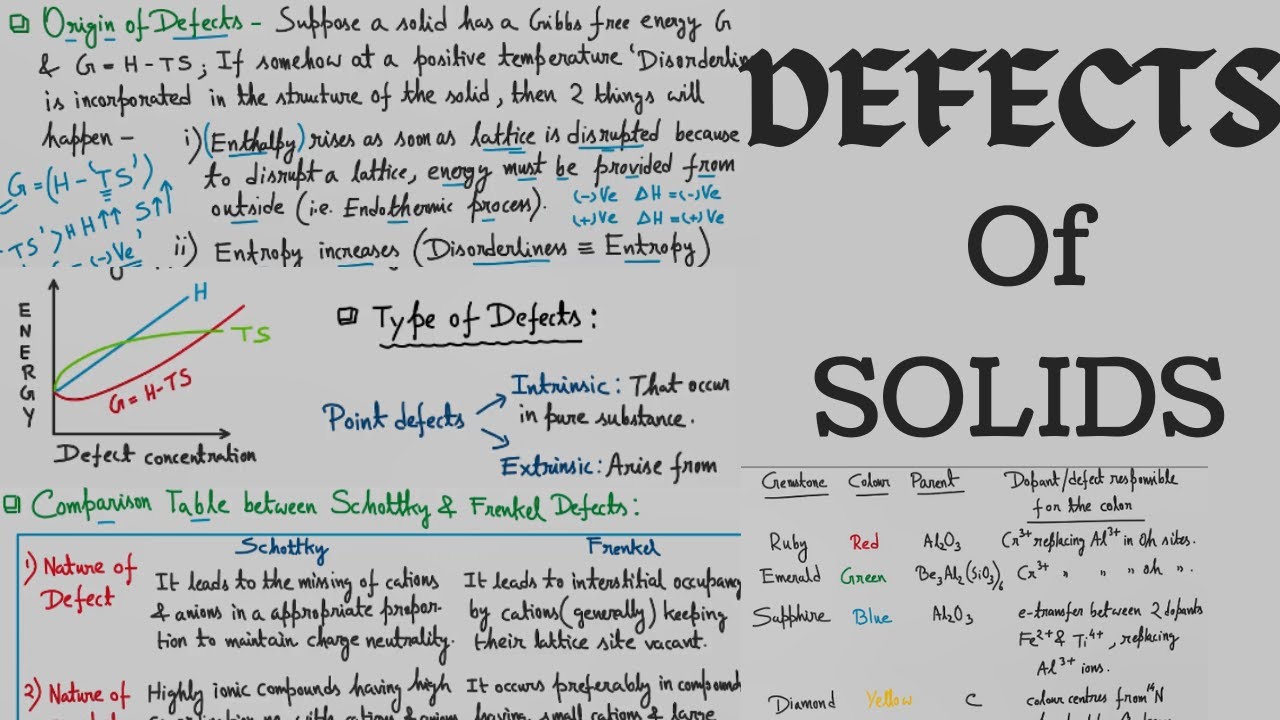 Origin of Defects - Suppose a solid has a Gibbs free energy G
& G = H - TS; If somehow at a positive temperature 'Disorderlin
is incorporated in the structure of the solid, then 2 things will
happen - i) (Enthalpy) rises as soon as lattice is disrupted because
to disrupt a lattice, energy must be provided from
outside (i.e. Endothermic process).
(-)Ve ΔH = (-)Ve
(+)Ve ΔH = (+)Ve
G = (H - 'TS')
H↑↑ S↑↑
TS' > H
(-)Ve'
ii) Entropy increases (Disorderliness ≡ Entropy)
ENERGY
H
TS
G = H-TS
Defect concentration
Type of Defects:
Point defects
Intrinsic: That occur
in pure substance.
Extrinsic: Arise from
Comparison Table between Schottky & Frenkel Defects:
Schottky Frenkel
1) Nature of
Defect
It leads to the missing of cations
& anions in a appropriate propor-
tion to maintain charge neutrality.
It leads to interstitial occupancy
by cations (generally) keeping
their lattice site vacant.
2) Nature of
Highly ionic compounds having high
It occurs preferably in compound
having small cations & large
DEFECTS
Of
SOLIDS
Gemstone Colour Parent Dopant/defect responsible
for the color
Ruby Red Al2O3 Cr3+ replacing Al3+ in Oh sites.
Emerald Green Be3Al2(SiO3)6 Cr3+ " " " Oh ".
Sapphire Blue Al2O3 e-transfer between 2 dopants
Fe2+ & Ti4+, replacing
Al3+ ions.
Diamond Yellow C colour centres from N